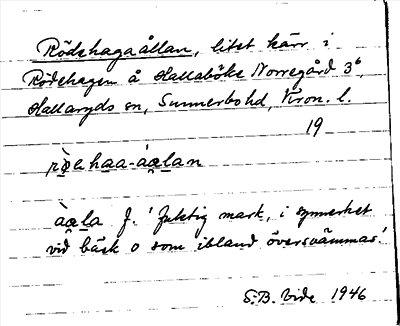 Rödehagaållan, litet kärr i
Rödehagen å Hallaböke Norregård 3⁶,
Hallaryds sn, Sunnerbo hd, Kron. l.
19
àǫla f. 'fuktig mark, i synnerhet
vid bäck o som ibland översvämmas'.
S.B. Vide 1946